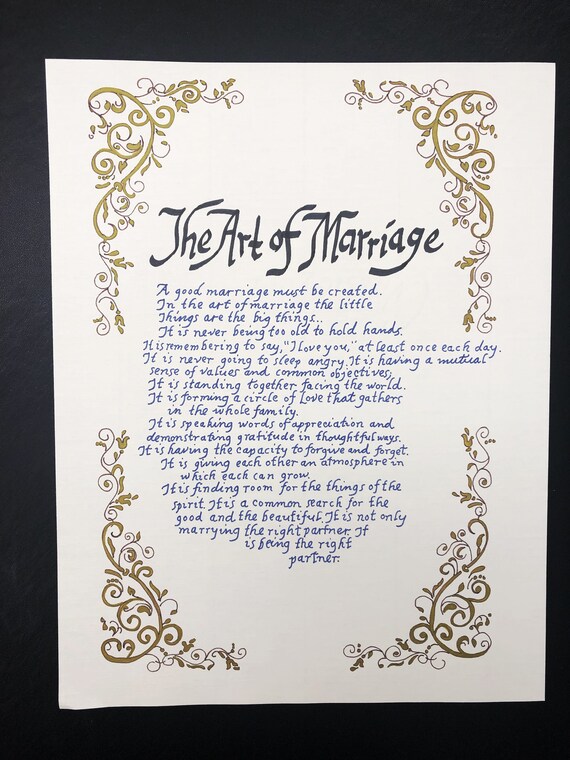 The Art of Marriage
A good marriage must be created.
In the art of marriage the little
Things are the big things..
It is never being too old to hold hands.
It is remembering to say, "I love you," at least once each day.
It is never going to sleep angry. It is having a mutual
sense of values and common objectives,
It is standing together facing the world.
It is forming a circle of Love that gathers
in the whole family.
It is speaking words of appreciation and
demonstrating gratitude in thoughtful ways.
It is having the capacity to forgive and forget.
It is giving each other an atmosphere in
which each can grow.
It is finding room for the things of the
spirit. It is a common search for the
good and the beautiful. It is not only
marrying the right partner. It
is being the right
partner.